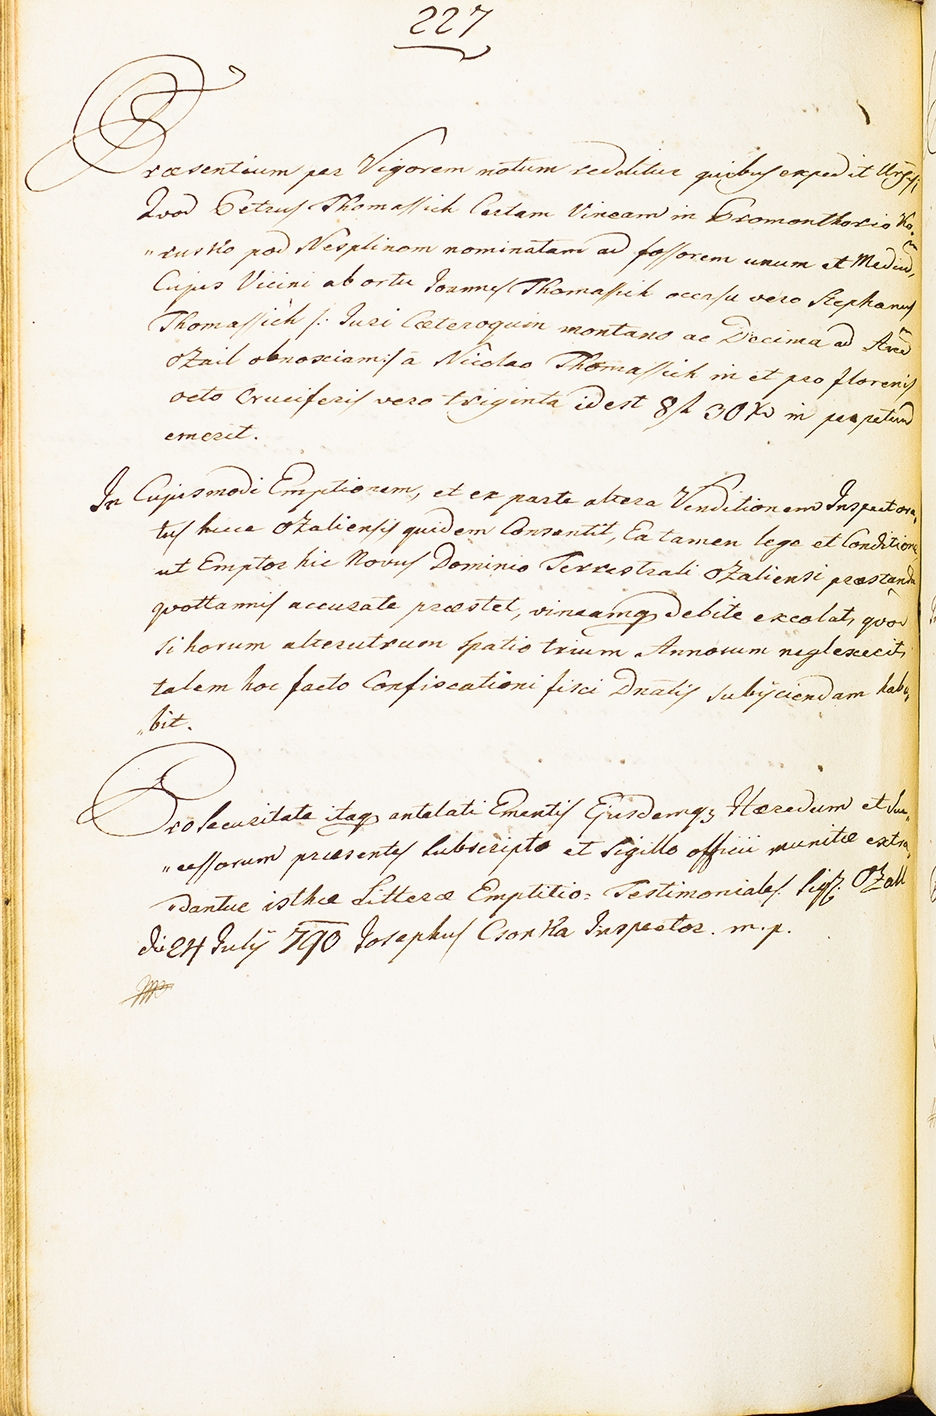 227
Præsentium per Vigorem notum redditur quibus expedit Urgsi;
Quod Petrus Thomassich Certam Vineam in Promonthorio Ko„
„rusko pod Nesplinom nominatam ad fossorem unum et Mediũ,
Cujus Vicini ab ortu Joannes Thomassich occasu vero Stephanus
Thomassich /: Juri Cæteroquin montano ac Decimæ ad Arcẽ
Ozail obnoxiam:/ à Nicolao Thomassich in et pro florenis
octo Cruciferis vero triginta id est 8 f 30 Xr in perpetuũ
emerit.
In Cujusmodi Emptionem, et ex parte altera Venditionem Inspectora„
tus hicce Ozaliensis quidem Consentit, Ea tamen lege et Conditione
ut Emptor hic Novus Dominio Terrestrali Ozaliensi præstanda
quottannis accurate præstet, vineamq debite excolat, quod
si horum alterutrum spatio trium Annorum neglexerit,
talem hoc facto Confiscationi fisci Dnãlis subijciendam habe„
„bit.
Pro Securitate itaq antelati Ementis Ejusdemq; Hæredum et Suc„
„cessorum præsentes subscripto et Sigillo officii munitæ extra„
„dantur isthæ Litteræ Emptitio= Testimoniales. Sigß: Ozall
die 24 July 790 Josephus Csonka Inspector. m. p.